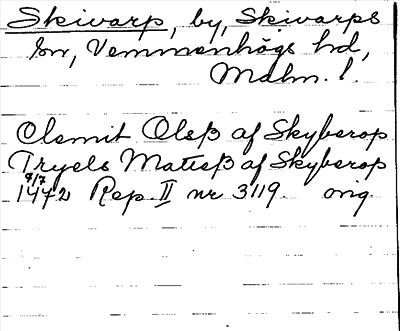 Skivarp, by, Skivarps
sn, Vemmenhögs hd,
Malm. l.
Clemit Olsß af Skyberop
Tryels Matisß af Skyberop
9/7
1472 Rep. II nr 3119. orig.